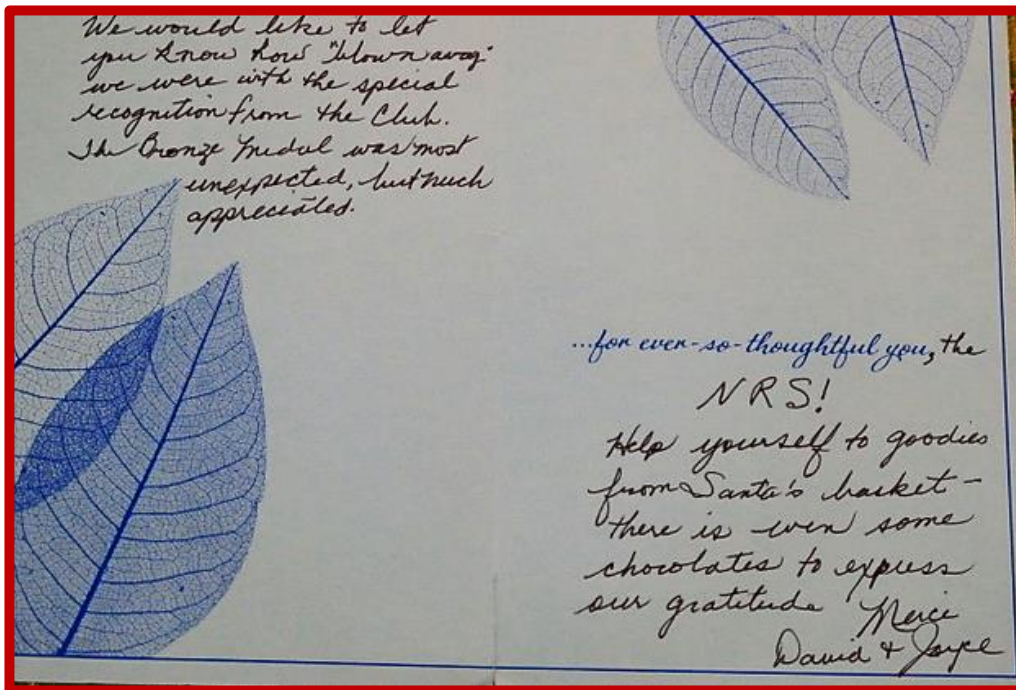 We would like to let
you know how "blown away"
we were with the special
recognition from the Club.
The Bronze Medal was most
unexpected, but much
appreciated.
...for ever-so-thoughtful you, the
NRS!
Help yourself to goodies
from Santa's basket -
there is even some
chocolates to express
our gratitude Merci
David & Joyce